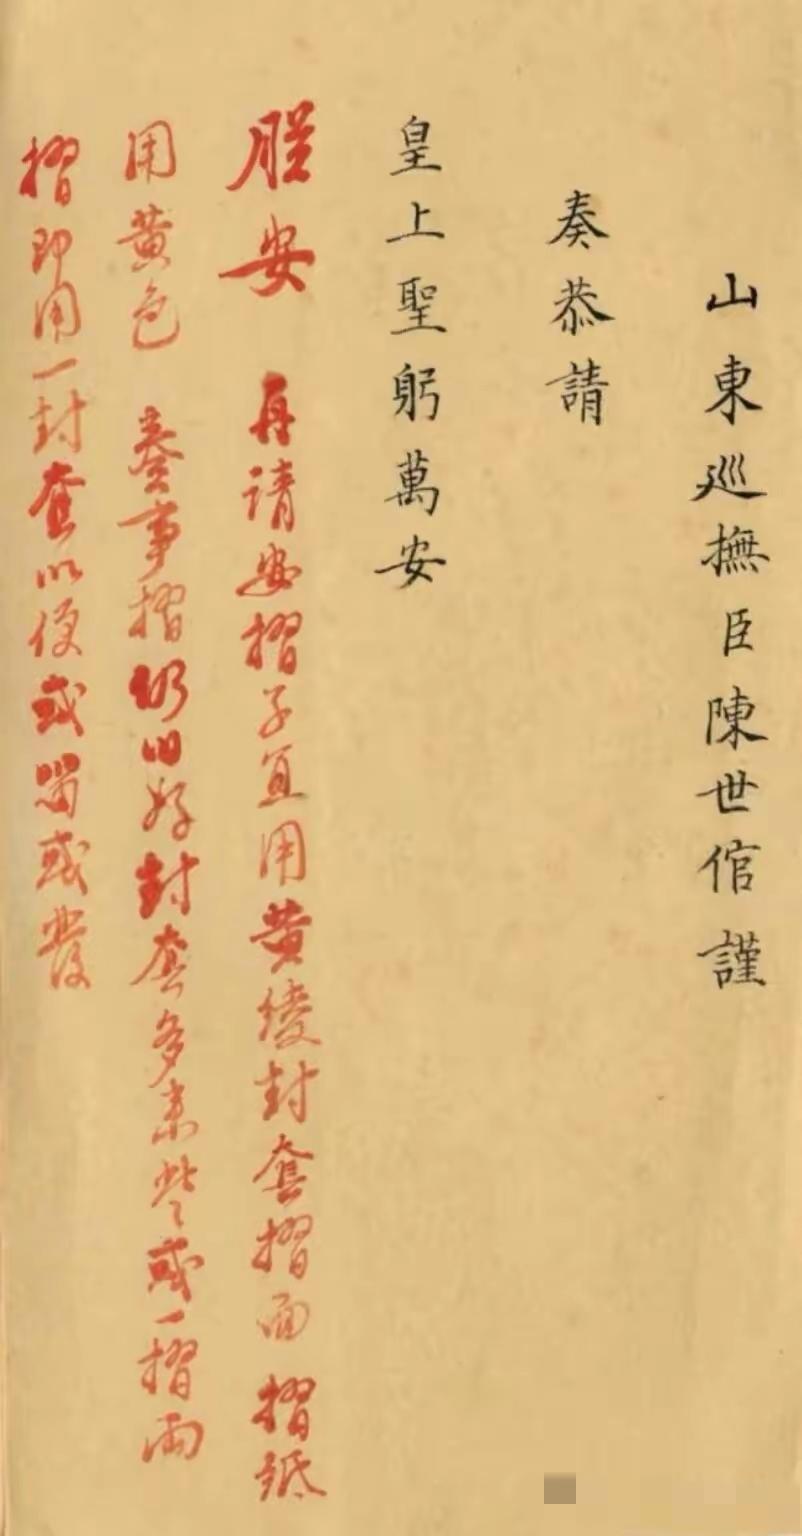 山東巡撫臣陳世倌謹
奏恭請
皇上聖躬萬安
朕安 再請安摺子宜用黃綾封套摺面 摺紙
用黃色 奏事摺仍旧好封套多來些或一摺兩
摺即用一封套以便或留或發